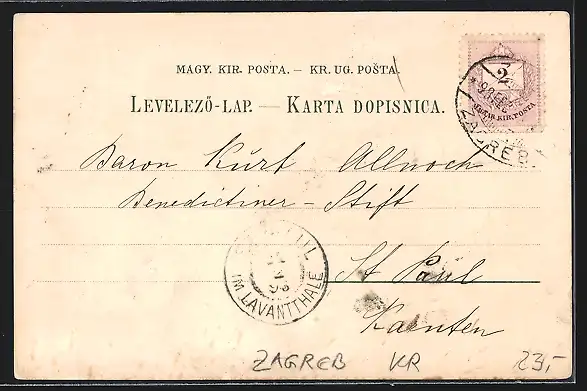 MAGY. KIR. POSTA. — KR. UG. POŠTA.
LEVELEZŐ-LAP. — KARTA DOPISNICA.
2
MAGYAR KIR. POSTA
ZAGREB
Baron Kurt Allnoch
Benedictiner - Stift
St Paul
Kaernten
IM LAVANTTHALE
ZAGREB KR 23,-